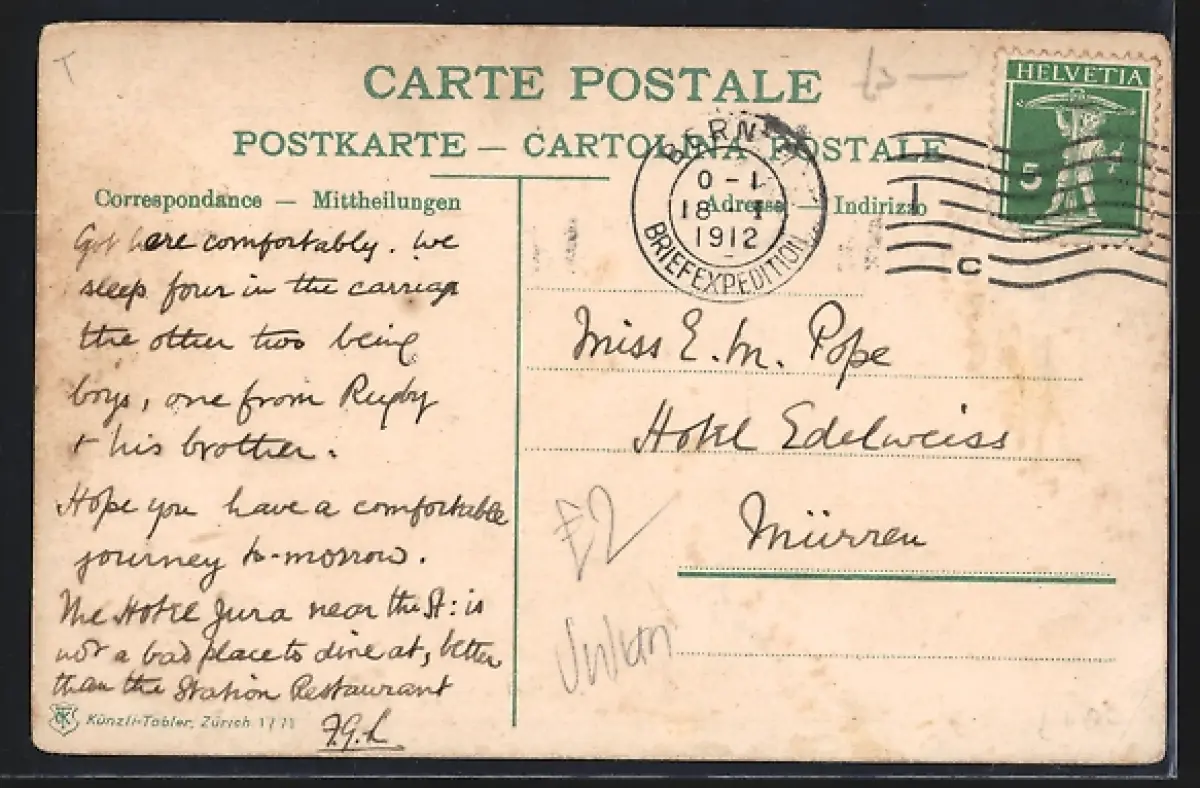 CARTE POSTALE
POSTKARTE — CARTOLINA POSTALE
Correspondance — Mittheilungen
Adresse — Indirizzo
HELVETIA
5
BERN
18 I
1912
BRIEFEXPEDITION
C
Got here comfortably. We
sleep four in the carriage
the other two being
boys, one from Rugby
+ his brother.
Hope you have a comfortable
journey to-morrow.
The Hotel Jura near the St: is
not a bad place to dine at, better
than the Station Restaurant
F.G.L
Miss E. M. Pope
Hotel Edelweiss
Mürren
£2
Künzli-Tobler, Zürich